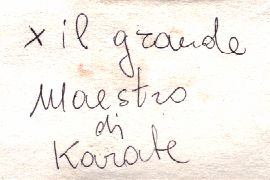 x il grande
Maestro
di
Karate